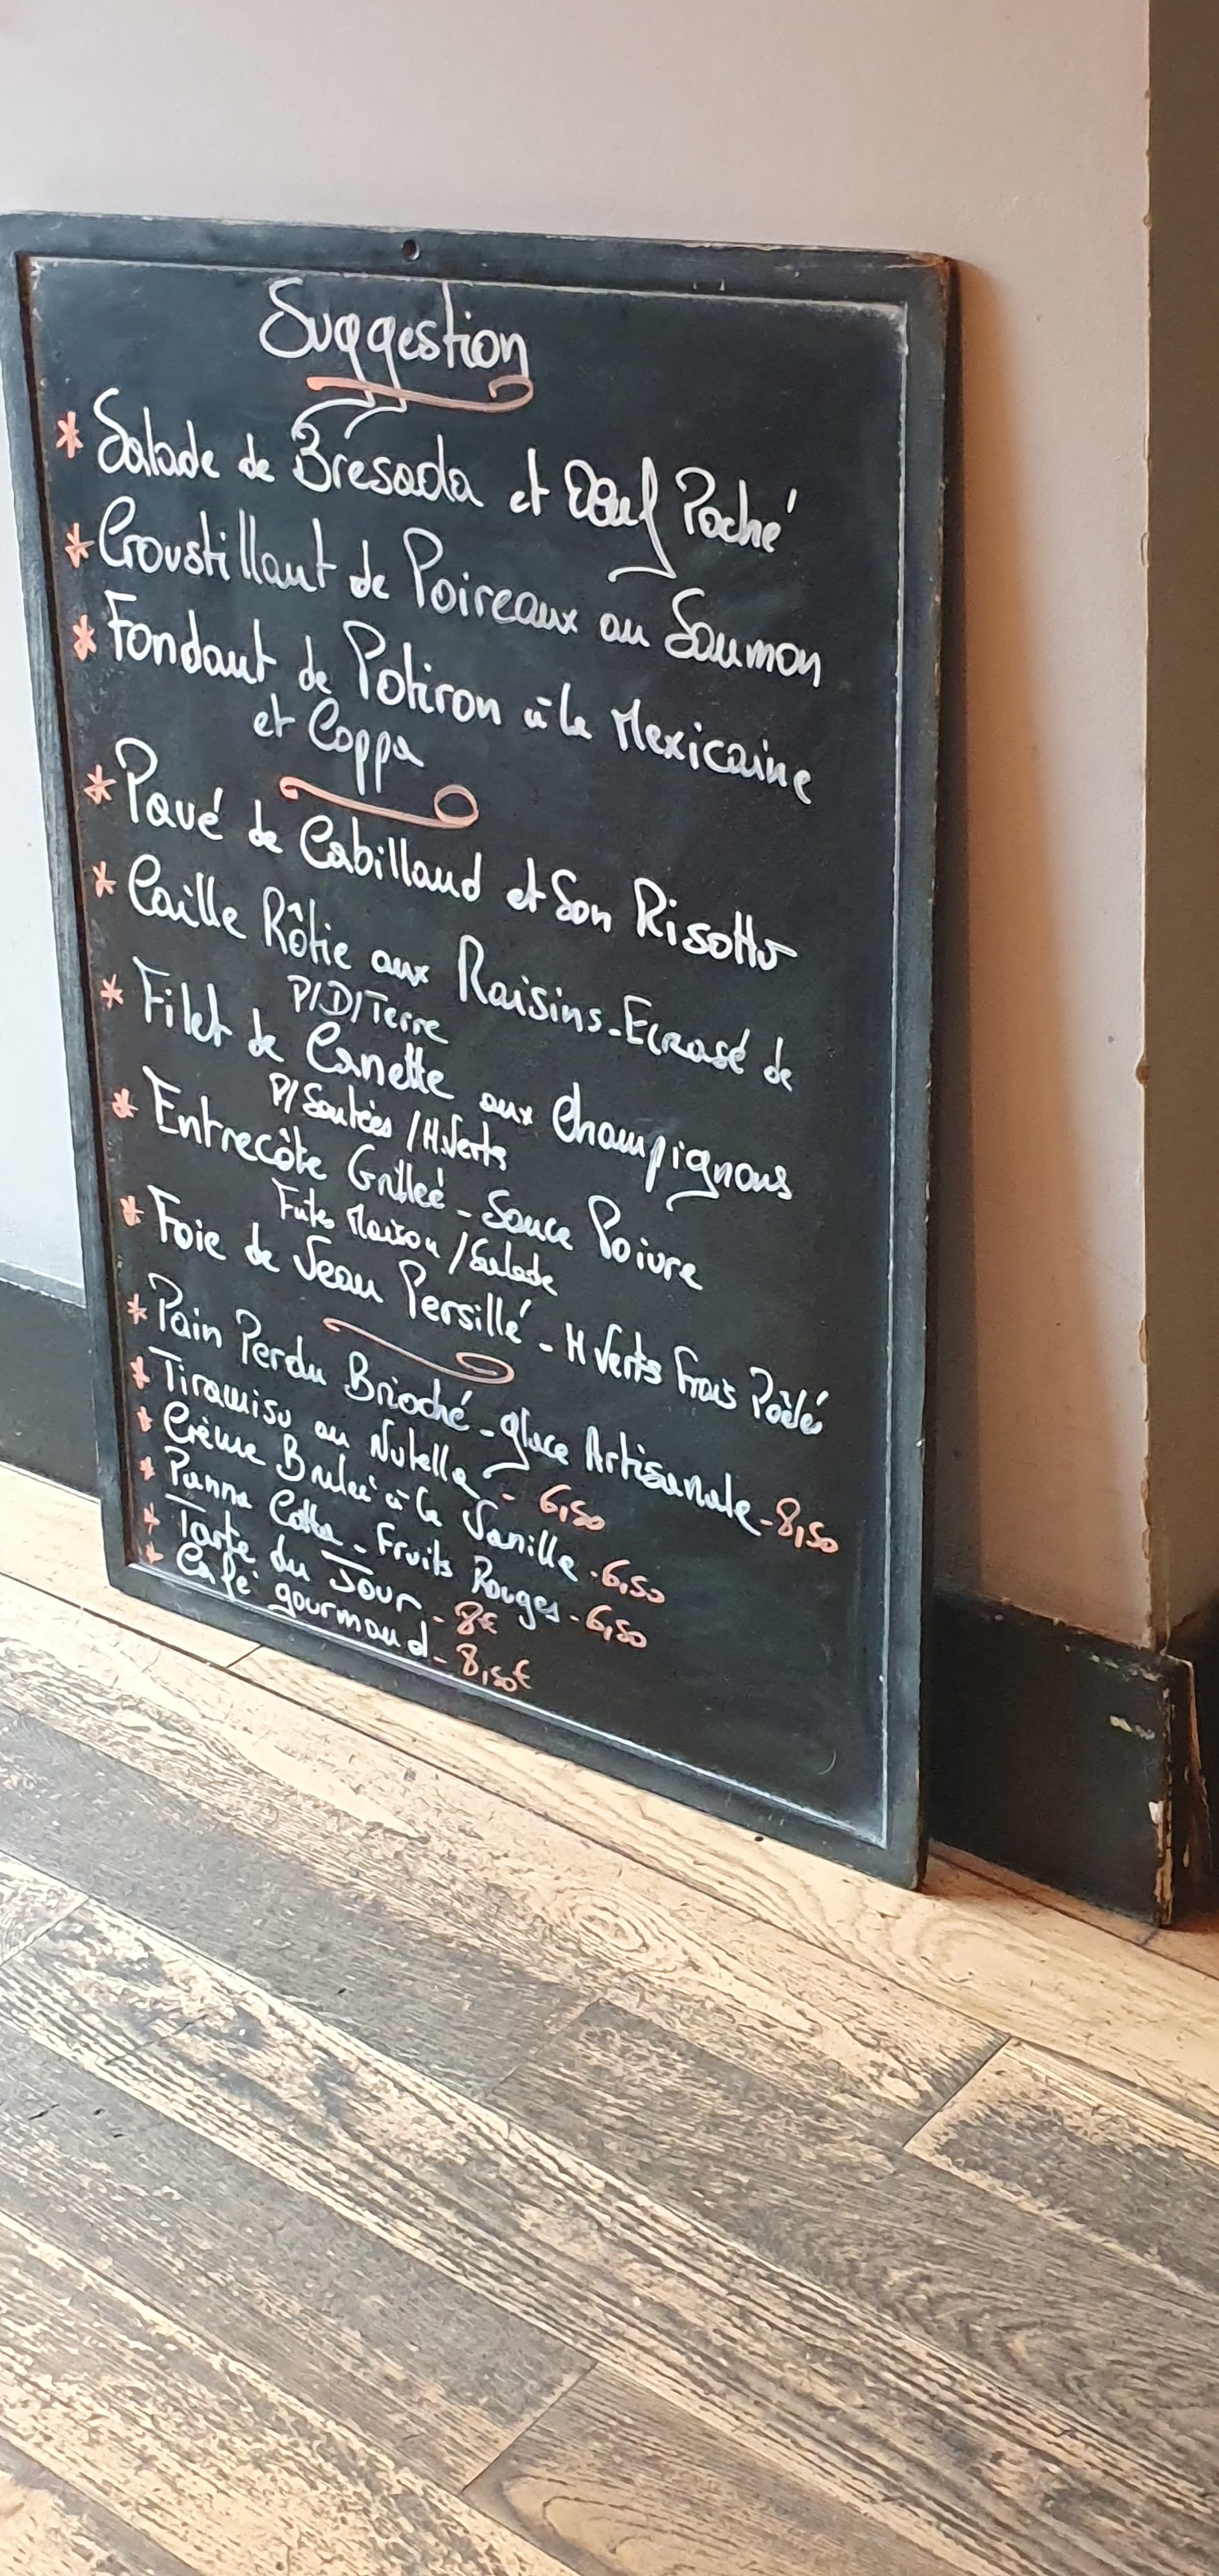 Suggestion
* Salade de Brésaola et Oeuf Poché
* Croustillant de Poireaux au Saumon
* Fondant de Potiron à la Mexicaine
et Coppa
* Pavé de Cabillaud et Son Risotto
* Caille Rôtie aux Raisins - Ecrasé de
P/D/Terre
* Filet de Canette aux Champignons
P/Sautées / H.Verts
* Entrecôte Grilleé - Sauce Poivre
Frites Maison / Salade
* Foie de Veau Persillé - H Verts Frais Poêlé
* Pain Perdu Brioché - glace Artisanale - 8,50
* Tiramisu au Nutella - 6,50
* Crème Brulée à la Vanille - 6,50
* Panna Cotta - Fruits Rouges - 6,50
* Tarte du Jour - 8€
* Café gourmand - 8,50€